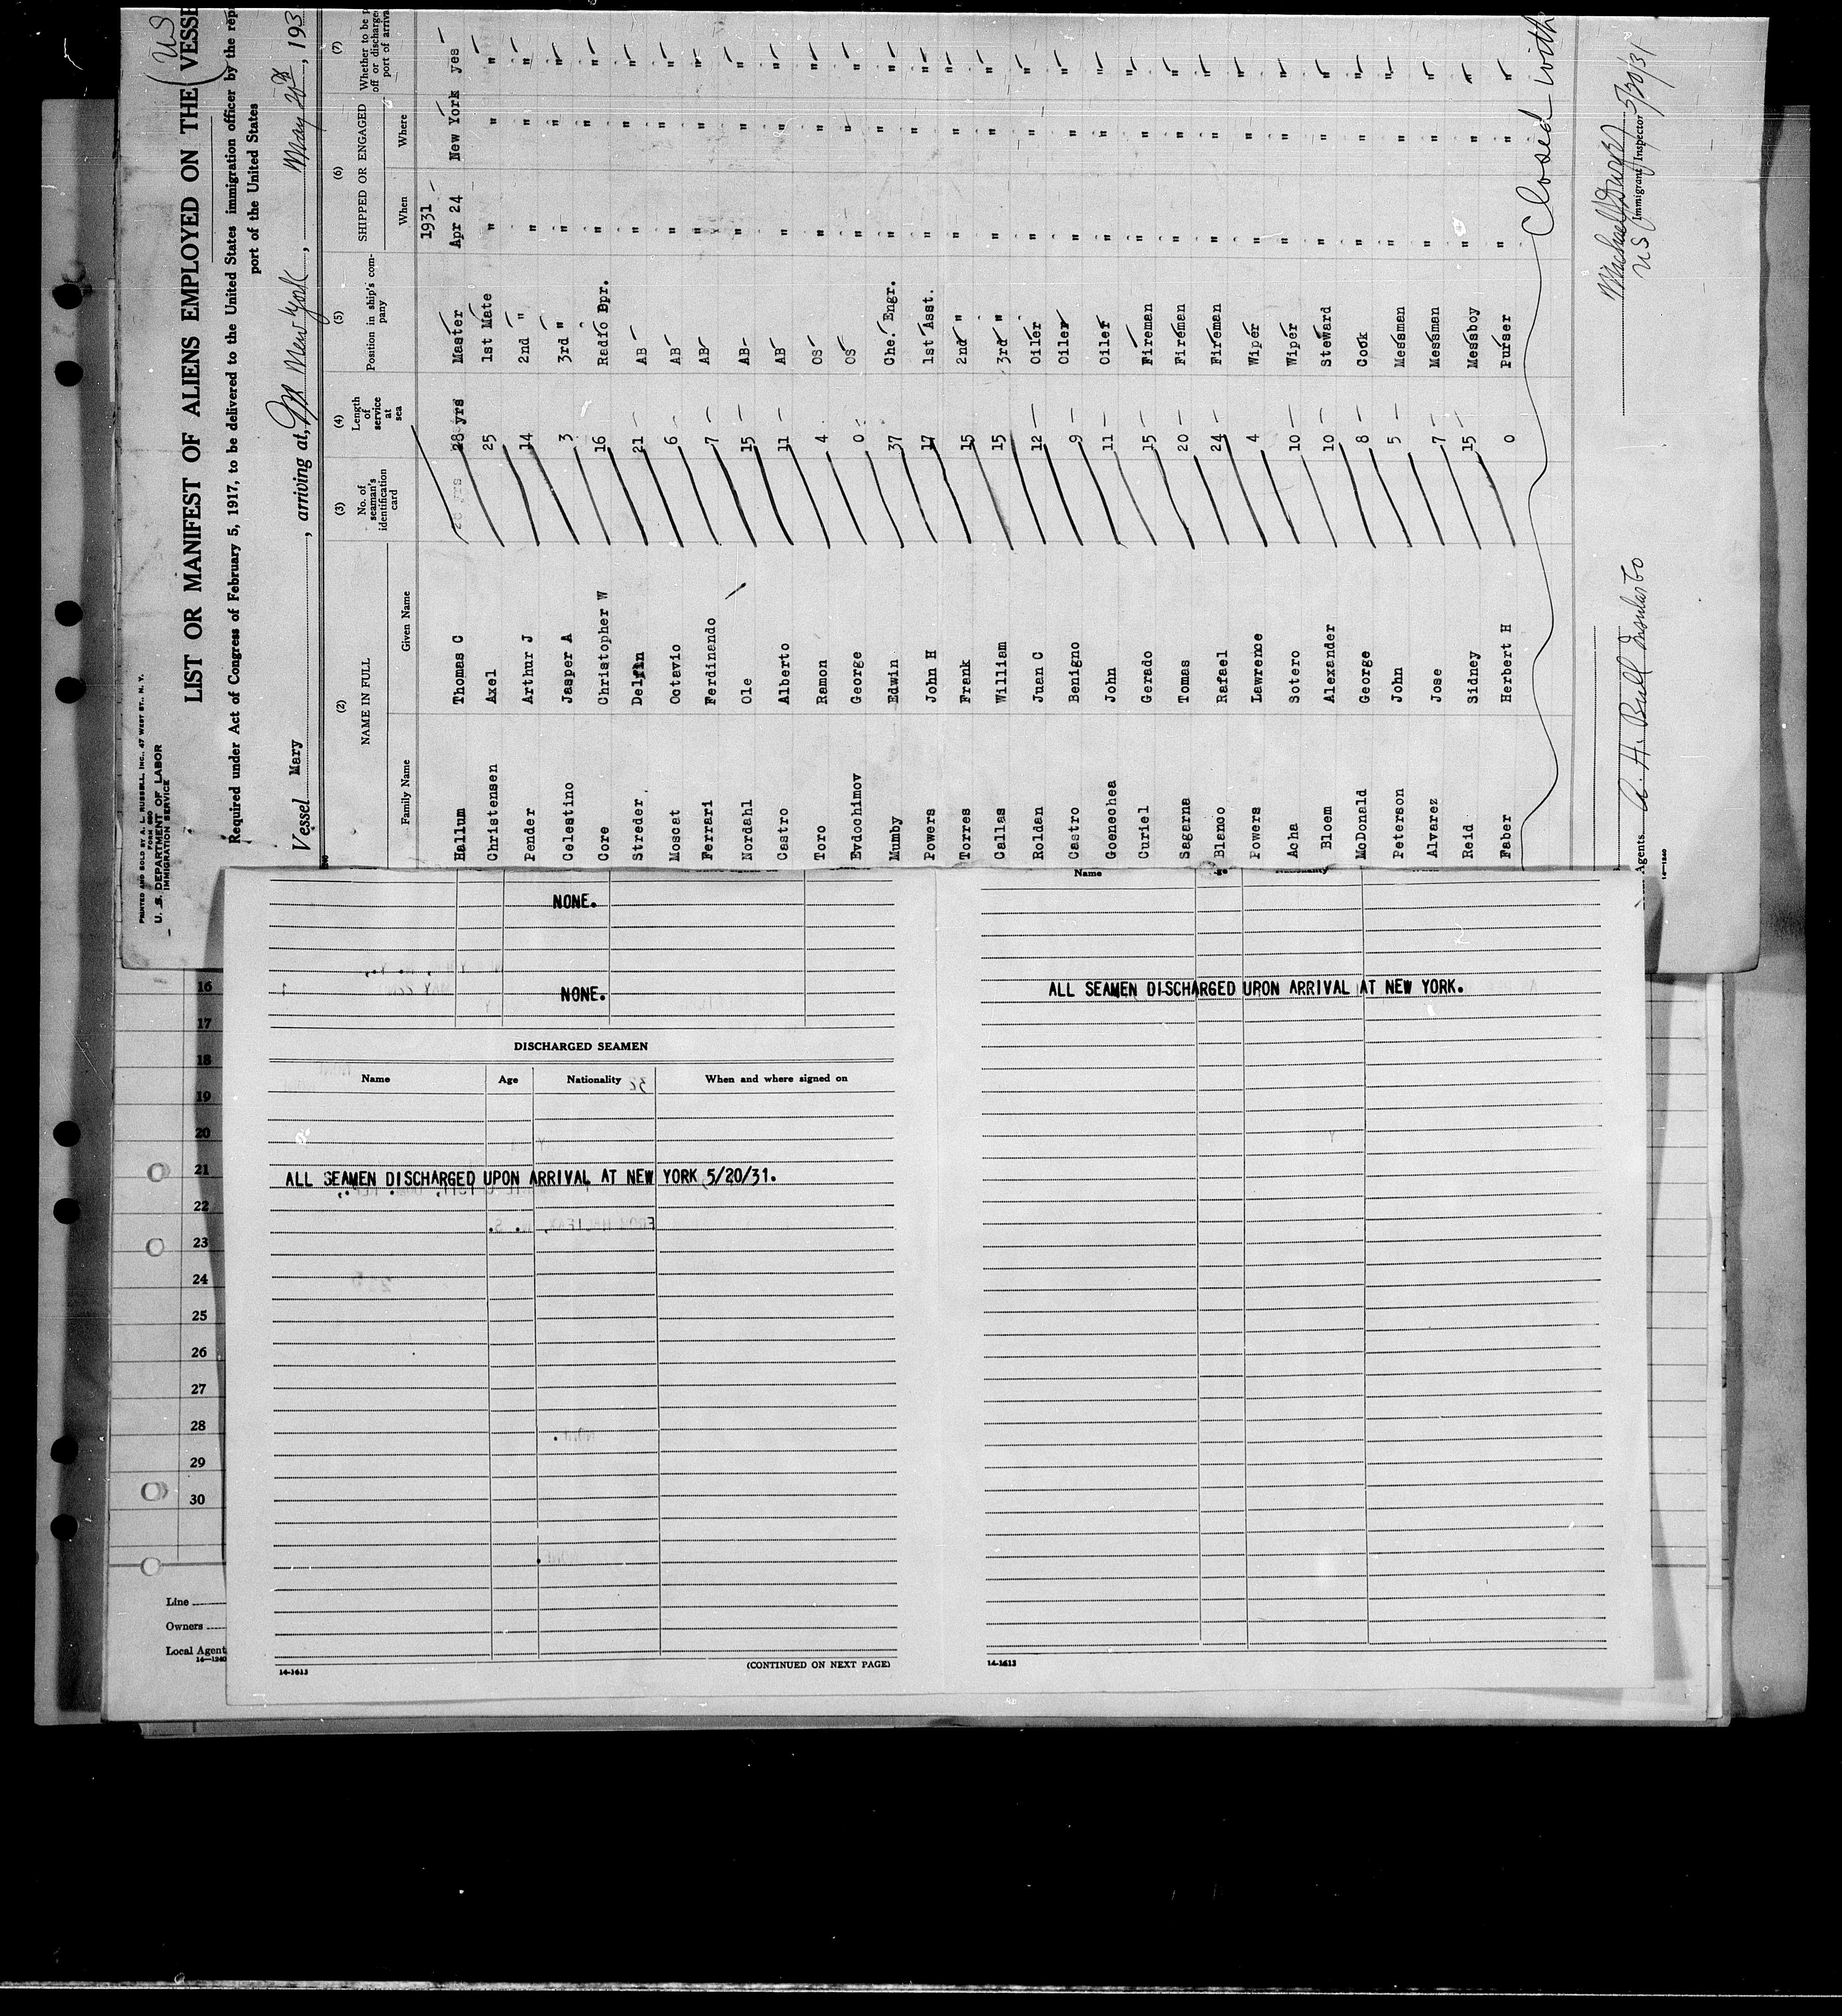 PRINTED AND SOLD BY A. L. RUSSELL, INC., 47 WEST ST., N. Y.
FORM 680
U. S. DEPARTMENT OF LABOR
IMMIGRATION SERVICE
(US
LIST OR MANIFEST OF ALIENS EMPLOYED ON THE VESSE
Required under Act of Congress of February 5, 1917, to be delivered to the United States immigration officer by the rep
port of the United States
Vessel Mary, arriving at, New York, May 20th, 193
(2) (3) (4) (5) (6) (7)
NAME IN FULL
No. of seaman's identification card
Length of service at sea
Position in ship's company
SHIPPED OR ENGAGED
Whether to be p
off or discharge
port of arriva
Family Name Given Name When Where
1931
Hallum Thomas C 28 yrs Master Apr 24 New York yes
Christensen Axel 25 1st Mate " " "
Pender Arthur J 14 2nd " " " "
Celestino Jasper A 3 3rd " " " "
Core Christopher W 16 Radio Opr. " " "
Streder Delfin 21 AB " " "
Moscat Octavio 6 AB " " "
Ferrari Ferdinando 7 AB " " "
Nordahl Ole 15 AB " " "
Castro Alberto 11 AB " " "
Toro Ramon 4 OS " " "
Evdochimov George 0 OS " " "
Mumby Edwin 37 Che. Engr. " " "
Powers John H 17 1st Asst. " " "
Torres Frank 15 2nd " " " "
Callas William 15 3rd " " " "
Roldan Juan C 12 Oiler " " "
Castro Benigno 9 Oiler " " "
Goenechea John 11 Oiler " " "
Curiel Gerado 15 Fireman " " "
Sagarna Tomas 20 Fireman " " "
Blanco Rafael 24 Fireman " " "
Powers Lawrence 4 Wiper " " "
Acha Sotero 10 Wiper " " "
Bloem Alexander 10 Steward " " "
McDonald George 8 Cook " " "
Peterson John 5 Messman " " "
Alvarez Jose 7 Messman " " "
Reid Sidney 15 Messboy " " "
Faber Herbert H 0 Purser " " "
Closed with
5/20/31
US Immigrant Inspector
A. H. Bull
Agents.
14—1240
NONE.
NONE.
DISCHARGED SEAMEN
Name Age Nationality When and where signed on
ALL SEAMEN DISCHARGED UPON ARRIVAL AT NEW YORK 5/20/31.
14-1613
(CONTINUED ON NEXT PAGE)
Name
ALL SEAMEN DISCHARGED UPON ARRIVAL AT NEW YORK.
14-1613
16
17
18
19
20
21
22
23
24
25
26
27
28
29
30
Line
Owners
Local Agent
14—1240